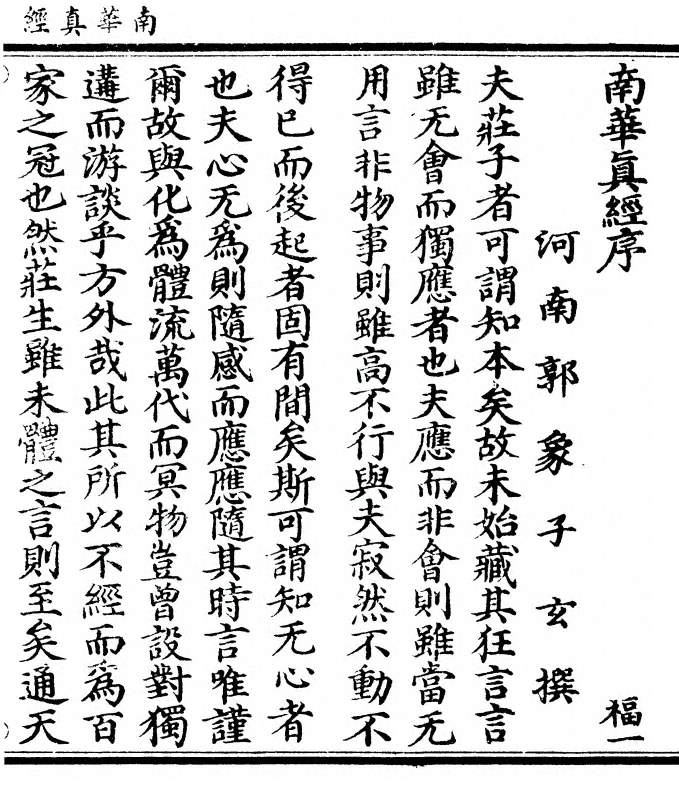 南華真經
南華眞經序
福一
河南郭象子玄撰
夫莊子者可謂知本矣故未始藏其狂言言
雖无會而獨應者也夫應而非會則雖當无
用言非物事則雖高不行與夫寂然不動不
得已而後起者固有間矣斯可謂知无心者
也夫心无爲則隨感而應應隨其時言唯謹
爾故與化爲體流萬代而冥物豈曾設對獨
遘而游談乎方外哉此其所以不經而爲百
家之冠也然莊生雖未體之言則至矣通天